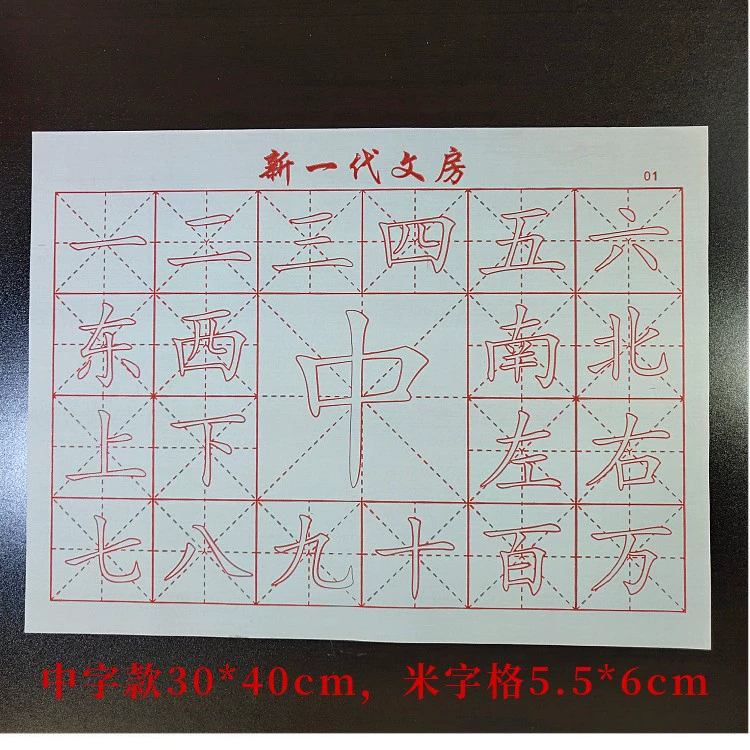 新一代文房
01
一二三四五六
东西中南北
上下左右
七八九十百万
中字款30*40cm，米字格5.5*6cm